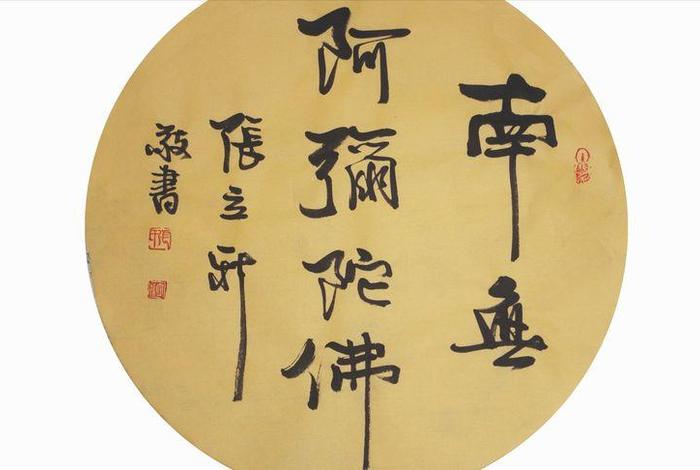 南無
阿彌陀佛
張立新
敬書